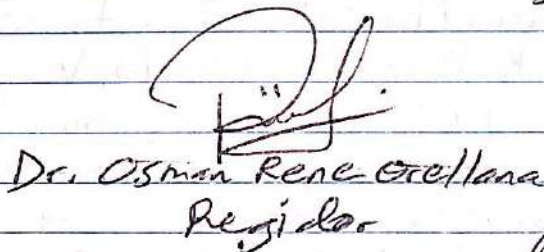 Dr. Osman Rene Orellana
Regidor